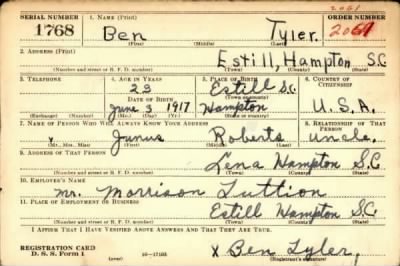 2061
SERIAL NUMBER 1. NAME (Print) ORDER NUMBER
1768 Ben Tyler. 2061
(First) (Middle) (Last)
2. ADDRESS (Print)
Estill, Hampton S.C.
(Number and street or R. F. D. number) (Town) (County) (State)
3. TELEPHONE 4. AGE IN YEARS 5. PLACE OF BIRTH 6. COUNTRY OF CITIZENSHIP
23 Estill S.C.
DATE OF BIRTH (Town or county)
June 3, 1917 Hampton U.S.A.
(Exchange) (Number) (Mo.) (Day) (Yr.) (State or country)
7. NAME OF PERSON WHO WILL ALWAYS KNOW YOUR ADDRESS 8. RELATIONSHIP OF THAT PERSON
x Junus Roberts Uncle.
(Mr., Mrs., Miss) (First) (Middle) (Last)
9. ADDRESS OF THAT PERSON
Lena Hampton S.C.
(Number and street or R. F. D. number) (Town) (County) (State)
10. EMPLOYER'S NAME
Mr. Morrison Luttion
11. PLACE OF EMPLOYMENT OR BUSINESS
Estill Hampton S.C.
(Number and street or R. F. D. number) (Town) (County) (State)
I AFFIRM THAT I HAVE VERIFIED ABOVE ANSWERS AND THAT THEY ARE TRUE.
REGISTRATION CARD
D. S. S. Form 1 16—17105 x Ben Tyler,
(Registrant's signature)